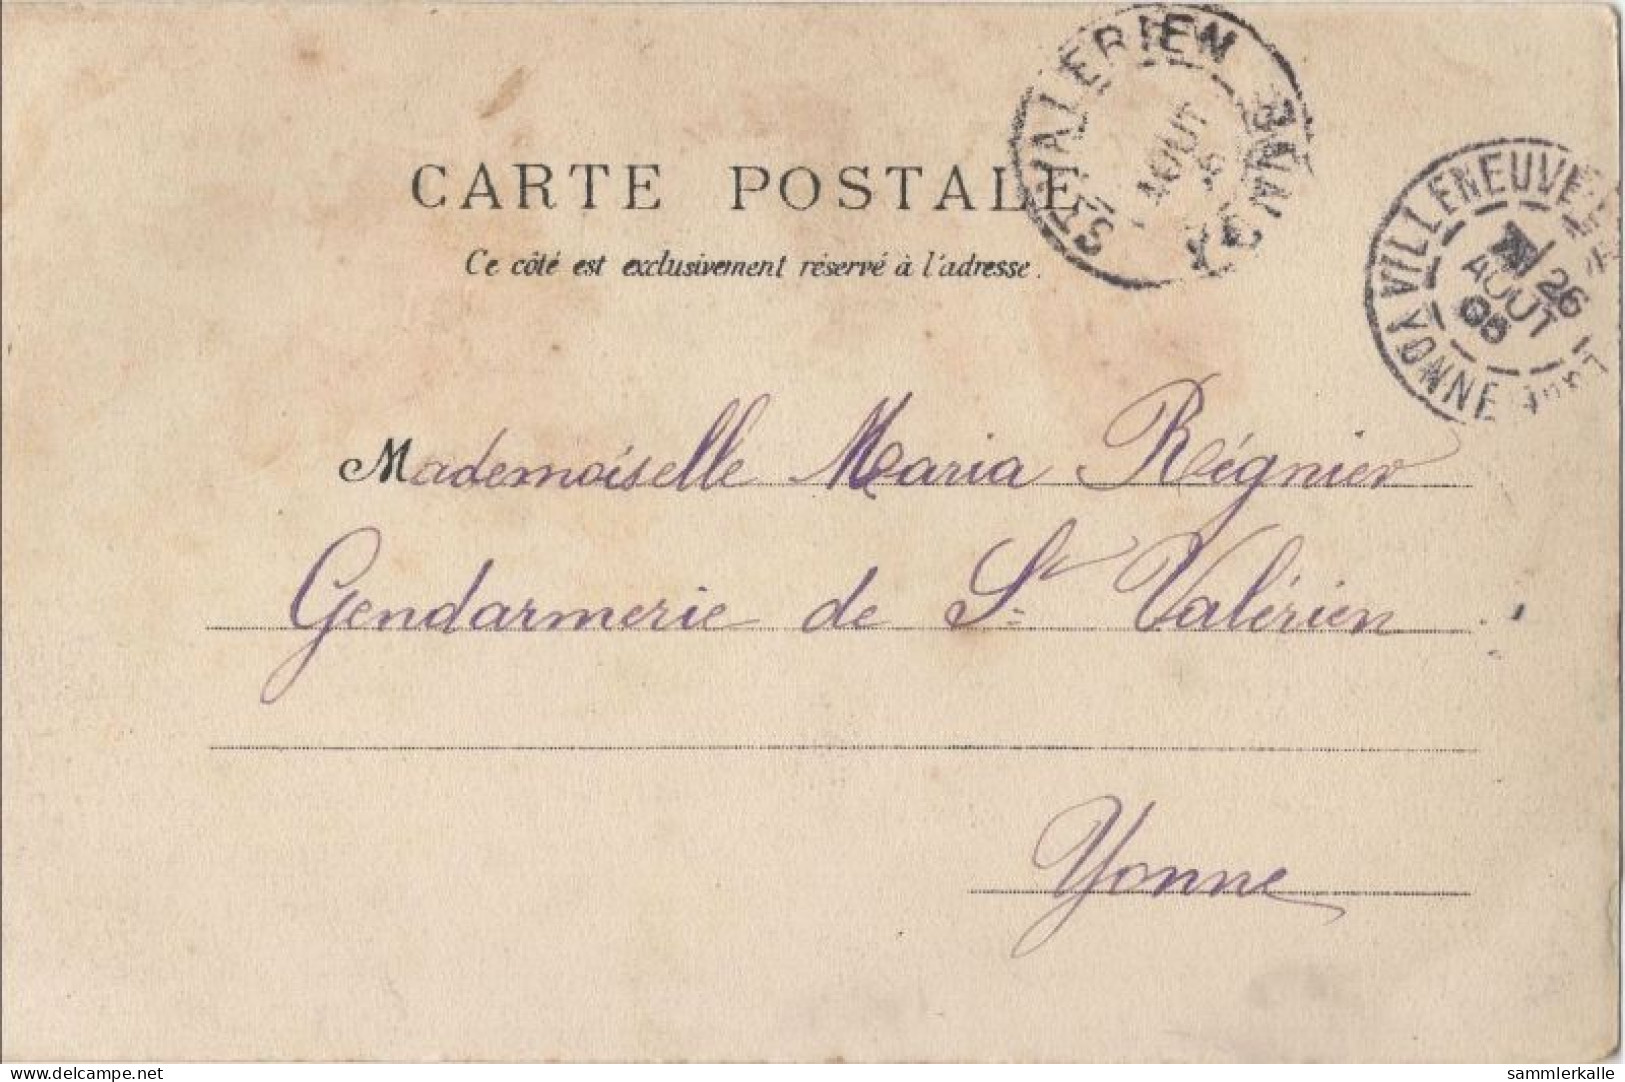 ST VALERIEN
YONNE
AOUT
VILLENEUVE
YONNE
26
AOUT
05
CARTE POSTALE
Ce côté est exclusivement réservé à l'adresse.
Mademoiselle Maria Régnier
Gendarmerie de St Valérien
Yonne
delcampe.net
sammlerkalle